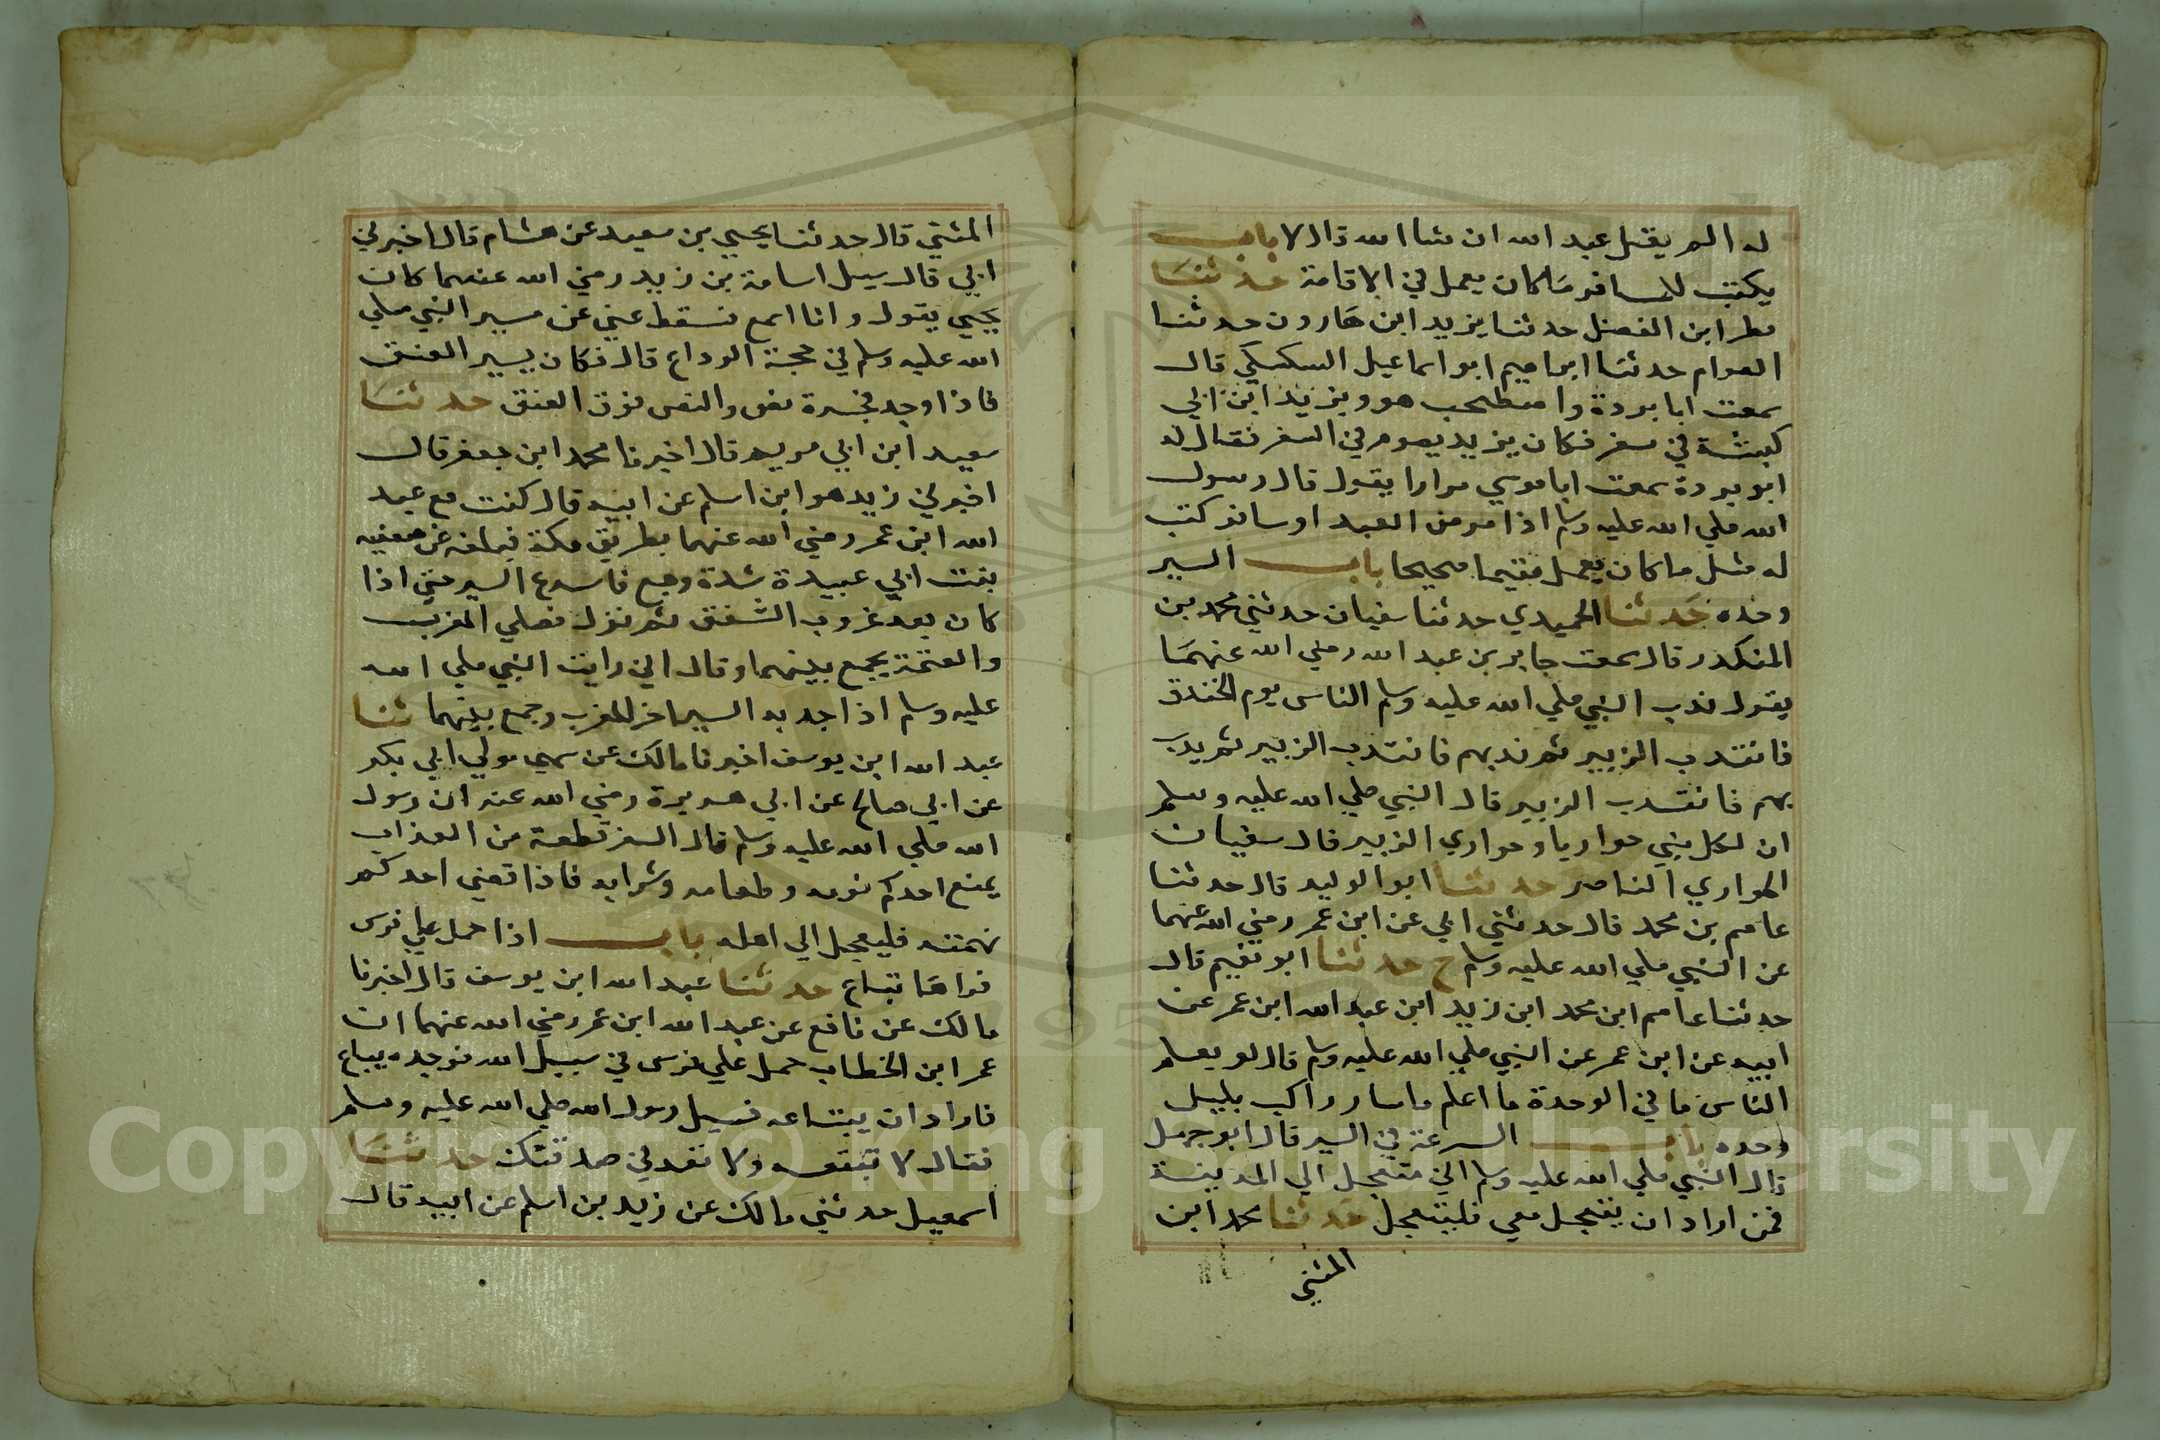 له الم يقل عبد الله ان شا الله قال لا باب
يكتب للمسافر ما كان يعمل في الاقامة حدثنا
مطر ابن الفضل حدثنا يزيد ابن هارون حدثنا
العوام حدثنا ابراهيم ابو اسماعيل السكسكي قال
سمعت ابا بردة واصطحب هو ويزيد ابن ابي
كبشة في سفر فكان يزيد يصوم في السفر فقال له
ابو بردة سمعت ابا موسي مرارا يقول قال رسول
الله صلي الله عليه وسلم اذا مرض العبد او سافر كتب
له مثل ما كان يعمل مقيما صحيحا باب السير
وحده حدثنا الحميدي حدثنا سفيان حدثني محمد بن
المنكدر قال سمعت جابر بن عبد الله رضي الله عنهما
يقول ندب النبي صلي الله عليه وسلم الناس يوم الخندق
فانتدب الزبير ثم ندبهم فانتدب الزبير ثم يدب
بهم فانتدب الزبير قال النبي صلي الله عليه وسلم
ان لكل نبي حواريا وحواري الزبير قال سفيان
الحواري الناصر حدثنا ابو الوليد قال حدثنا
عاصم بن محمد قال حدثني ابي عن ابن عمر رضي الله عنهما
عن النبي صلي الله عليه وسلم ح حدثنا ابو نعيم قال
حدثنا عاصم ابن محمد ابن زيد ابن عبد الله ابن عمر عن
ابيه عن ابن عمر عن النبي صلي الله عليه وسلم قال لو يعلم
الناس ما في الوحدة ما اعلم ما سار راكب بليل
وحده باب السرعة في السير قال ابو حميل
قال النبي صلي الله عليه وسلم اني متعجل الي المدينة
فمن اراد ان يتعجل معي فليتعجل حدثنا محمد ابن
المثني
المثني قال حدثنا يحيي بن سعيد عن هشام قال اخبرني
ابي قال سيل اسامة بن زيد رضي الله عنهما كان
يحيي يقول وانا اسمع فسقط عني عن مسير النبي صلي
الله عليه وسلم في حجة الوداع قال فكان يسير العنق
فاذا وجد فجرة نص والنص فوق العنق حدثنا
سعيد ابن ابي مريم قال اخبرنا محمد ابن جعفر قال
اخبرني زيد هو ابن اسلم عن ابيه قال كنت مع عبد
الله ابن عمر رضي الله عنهما بطريق مكة فبلغه عن صفيه
بنت ابي عبيدة شدة وجع فاسرع السير حتي اذا
كان بعد غروب الشفق ثم نزل فصلي المغرب
والعتمة يجمع بينهما وقال اني رايت النبي صلي الله
عليه وسلم اذا جد به السير اخر المغرب وجمع بينهما ثنا
عبد الله ابن يوسف اخبرنا مالك عن سمي مولي ابي بكر
عن ابي صالح عن ابي هريرة رضي الله عنه ان رسول
الله صلي الله عليه وسلم قال السفر قطعة من العذاب
يمنع احدكم نومه وطعامه وشرابه فاذا قضي احدكم
نهمته فليعجل الي اهله باب اذا حمل علي فرس
فراها تباع حدثنا عبد الله ابن يوسف قال اخبرنا
مالك عن نافع عن عبد الله ابن عمر رضي الله عنهما ان
عمر ابن الخطاب حمل علي فرس في سبيل الله فوجده يباع
فاراد ان يبتاعه فسيل رسول الله صلي الله عليه وسلم
فقال لا تبتعه ولا تعد في صدقتك حدثنا
اسمعيل حدثني مالك عن زيد بن اسلم عن ابيه قال
Copyright © King University